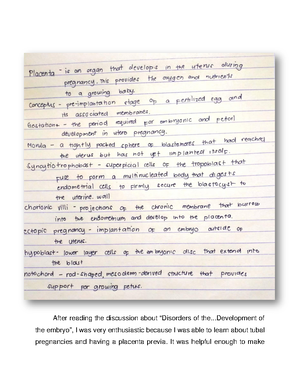 Placenta - is an organ that develops in the uterus during
pregnancy. This provides the oxygen and nutrients
to a growing baby.
Conceptus - pre-implantation stage of a fertilized egg and
its associated membranes.
Gestation - the period required for embryonic and fetal
development in utero pregnancy.
Morula - a tightly packed sphere of blastomeres that had reached
the uterus but has not yet implanted itself.
Syncytiotrophoblast - superficial cells of the tropoblast that
fuse to form a multinucleated body that digests
endometrial cells to firmly secure the blastocyst to
the uterine wall
chorionic villi - projections of the chorionic membrane that burrow
into the endometrium and develop into the placenta.
ectopic pregnancy - implantation of an embryo outside of
the uterus.
hypoblast - lower layer cells of the embryonic disc that extend into
the blast
notochord - rod-shaped, mesoderm-derived structure that provides
support for growing fetus.
After reading the discussion about “Disorders of the...Development of
the embryo”, I was very enthusiastic because I was able to learn about tubal
pregnancies and having a placenta previa. It was helpful enough to make